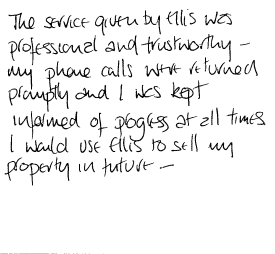 The service given by Ellis was
professional and trustworthy –
my phone calls were returned
promptly and I was kept
informed of progress at all times
I would use Ellis to sell my
property in future –